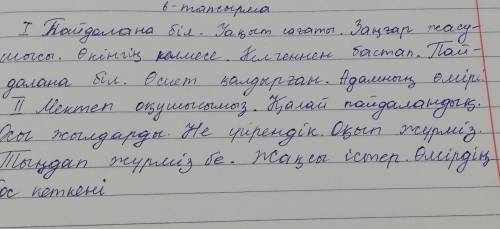 6-тапсырма
I Пайдалана біл. Уақыт сағаты. Заңғар жазу-
шысы. Өкінгің келмесе. Келгеннен бастап. Пай-
далана біл. Өсиет қалдырған. Адамның өмірі.
II Мектеп оқушысымыз. Қалай пайдаландық.
Осы жылдарды. Не үйрендік. Оқып жүрміз.
Тыңдап жүрміз бе. Жақсы істер. Өмірдің
бос кеткені